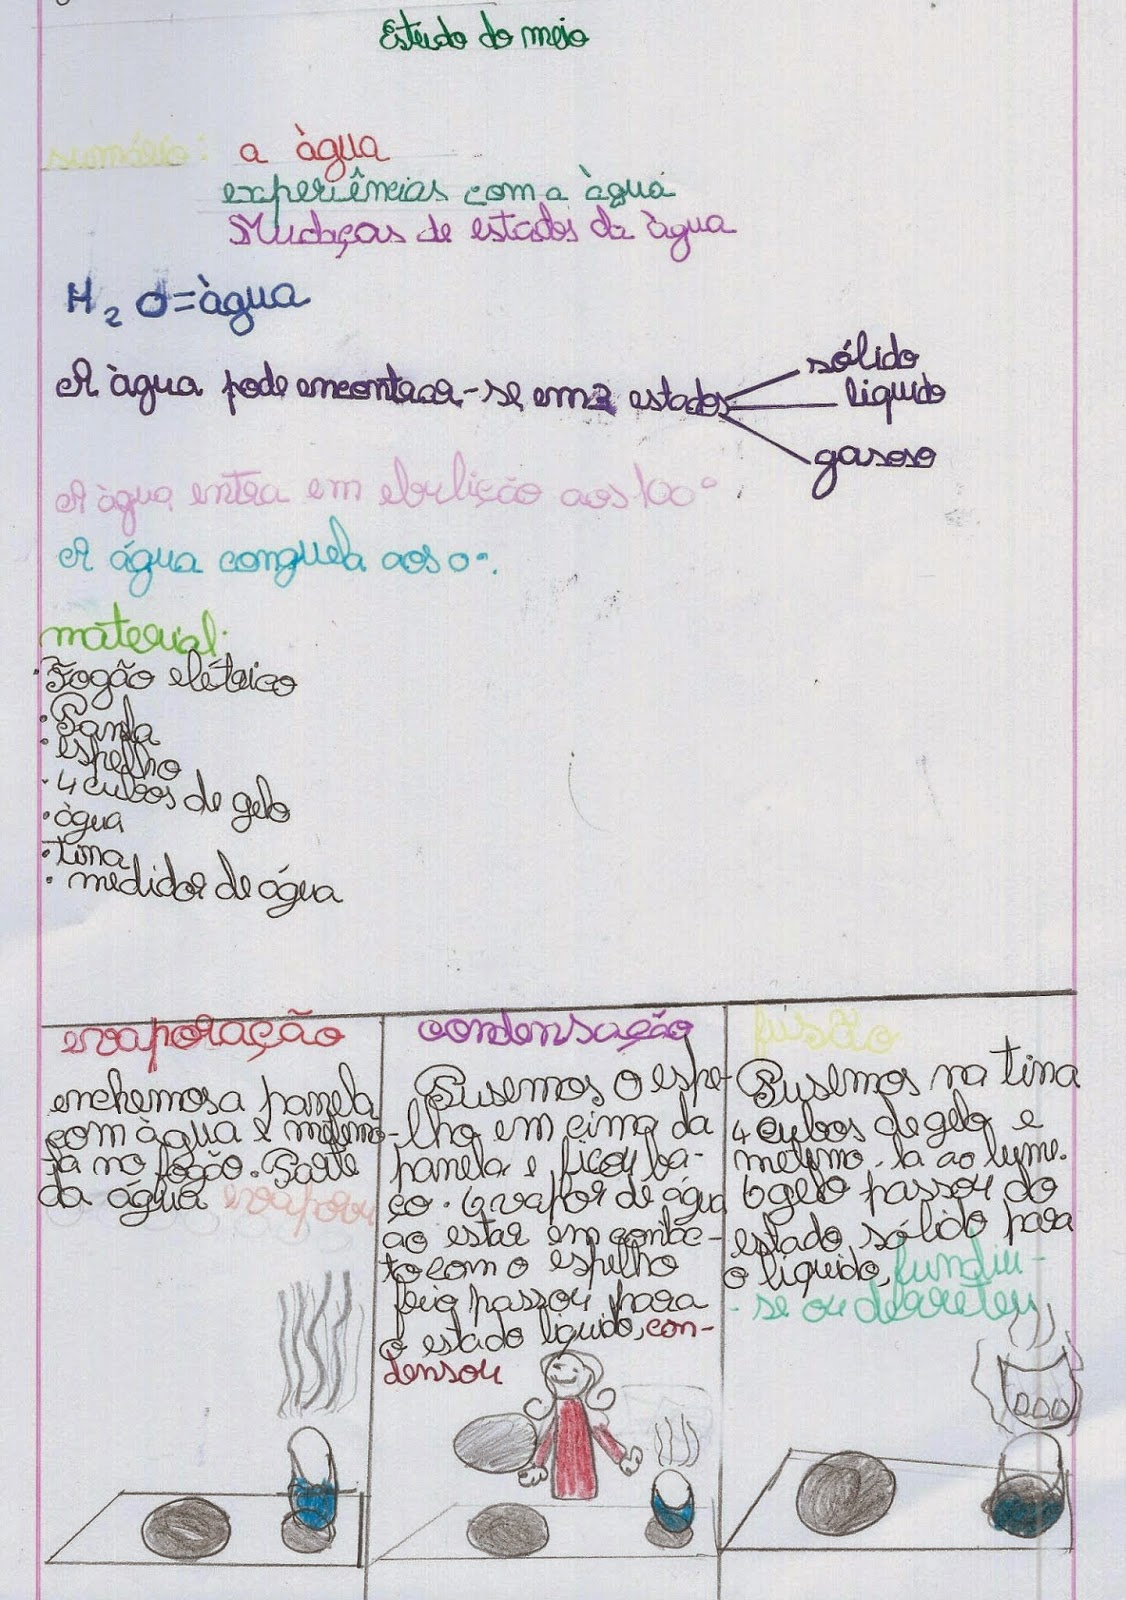 Estudo do meio
sumário: a àgua
experiências com a àgua
Mudaças de estados da àgua
H₂O=àgua
A àgua pode encontrar-se em 3 estados
sólido
liquido
gasoso
A àgua entra em ebulição aos 100°
A água conguela aos 0°.
material:
·Fogão elétrico
·Panla
·espelho
·4 cubos de gelo
·àgua
·tina
·medidor de água
evaporação
enchemos a panela
com àgua e metemo-
la no fogão. Parte
da água evaporou
condensação
Pusemos o espe-
lho em cima da
panela e ficou ba-
ço. O vapor de água
ao estar em contac-
to com o espelho
frio passou para
o estado liquido, con-
densou
fusão
Pusemos na tina
4 cubos de gelo e
metemo-la ao lume.
O gelo passou do
estado sólido para
o liquido, fundiu-
-se ou derreteu